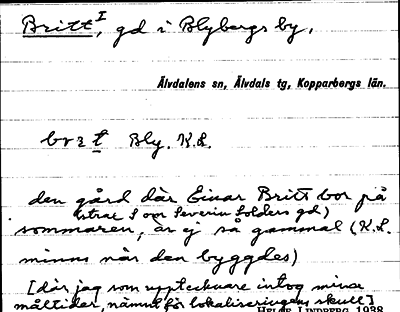 Britt I, gd i Blybergs by.
Älvdalens sn, Älvdals tg, Kopparbergs län.
Bly. K.L.
den gård där Einar Britt bor på
(strax S om Severin Solders gd)
sommaren, är ej så gammal (K.L.
minns när den byggdes)
[där jag som upptecknare intog mina
måltider, nämnt för lokaliseringens skull]
HELGE LINDBERG 1938